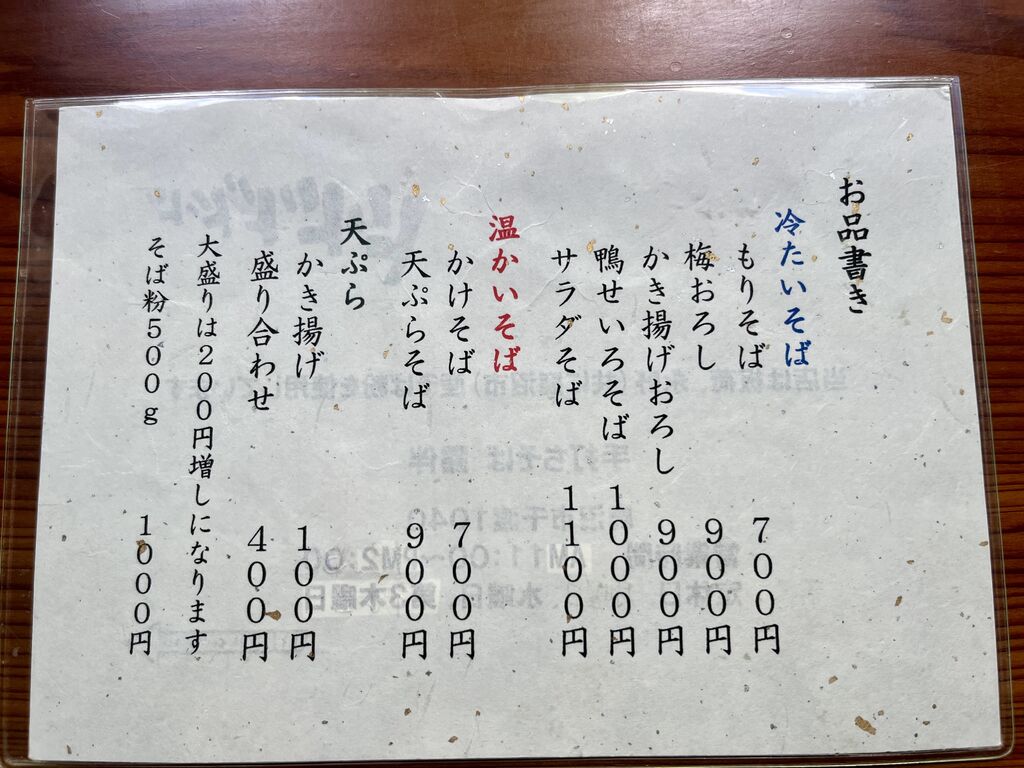 お品書き
冷たいそば
もりそば 700円
梅おろし 900円
かき揚げおろし 900円
鴨せいろそば 1000円
サラダそば 1100円
温かいそば
かけそば 700円
天ぷらそば 900円
天ぷら
かき揚げ 100円
盛り合わせ 400円
大盛りは200円増しになります
そば粉500g 1000円